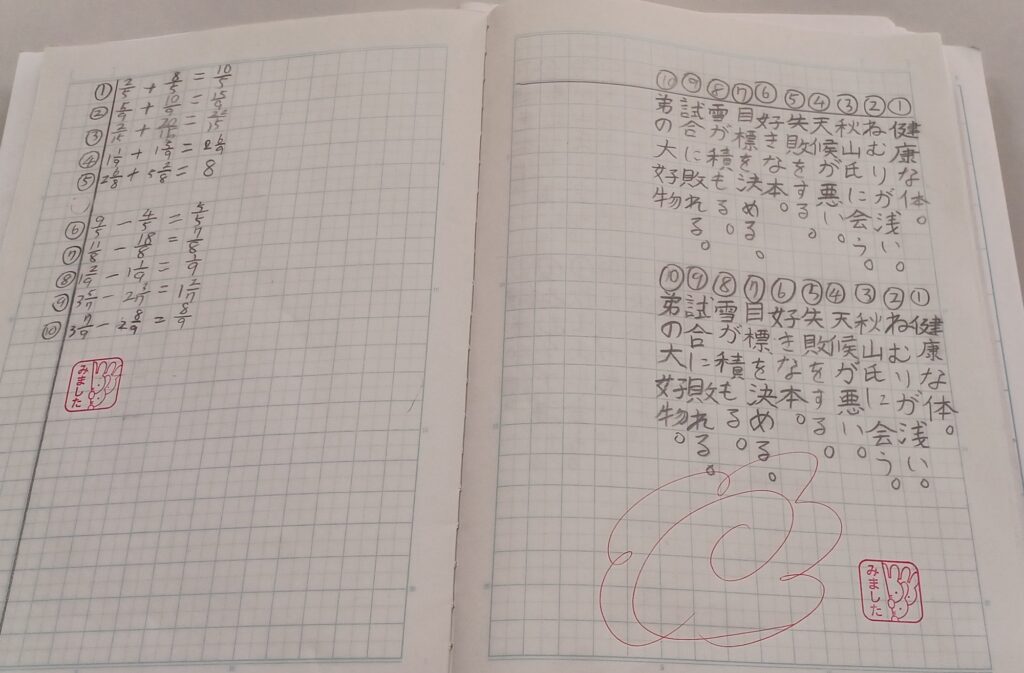 ① 2/5 + 8/5 = 10/5
② 5/9 + 10/9 = 15/9
③ 2/15 + 20/15 = 22/15
④ 1 1/9 + 1 5/9 = 2 6/9
⑤ + 5 2/8 = 8
⑥ 9/5 − 4/5 = 5/5
⑦ 11/8 − 18/8 = 7/8
⑧ 1 2/9 − 1 1/9 = 1/9
⑨ 3 5/7 − = 1 2/7
⑩ 3 7/9 − 2 8/9 = 8/9
みました
①健康な体。
②ねむりが浅い。
③秋山氏に会う。
④天候が悪い。
⑤失敗をする。
⑥好きな本。
⑦目標を決める。
⑧雪が積もる。
⑨試合に敗れる。
⑩弟の大好物
①健康な体。
②ねむりが浅い。
③秋山氏に会う。
④天候が悪い。
⑤失敗をする。
⑥好きな本。
⑦目標を決める。
⑧雪が積もる。
⑨試合に敗れる。
⑩弟の大好物。
みました